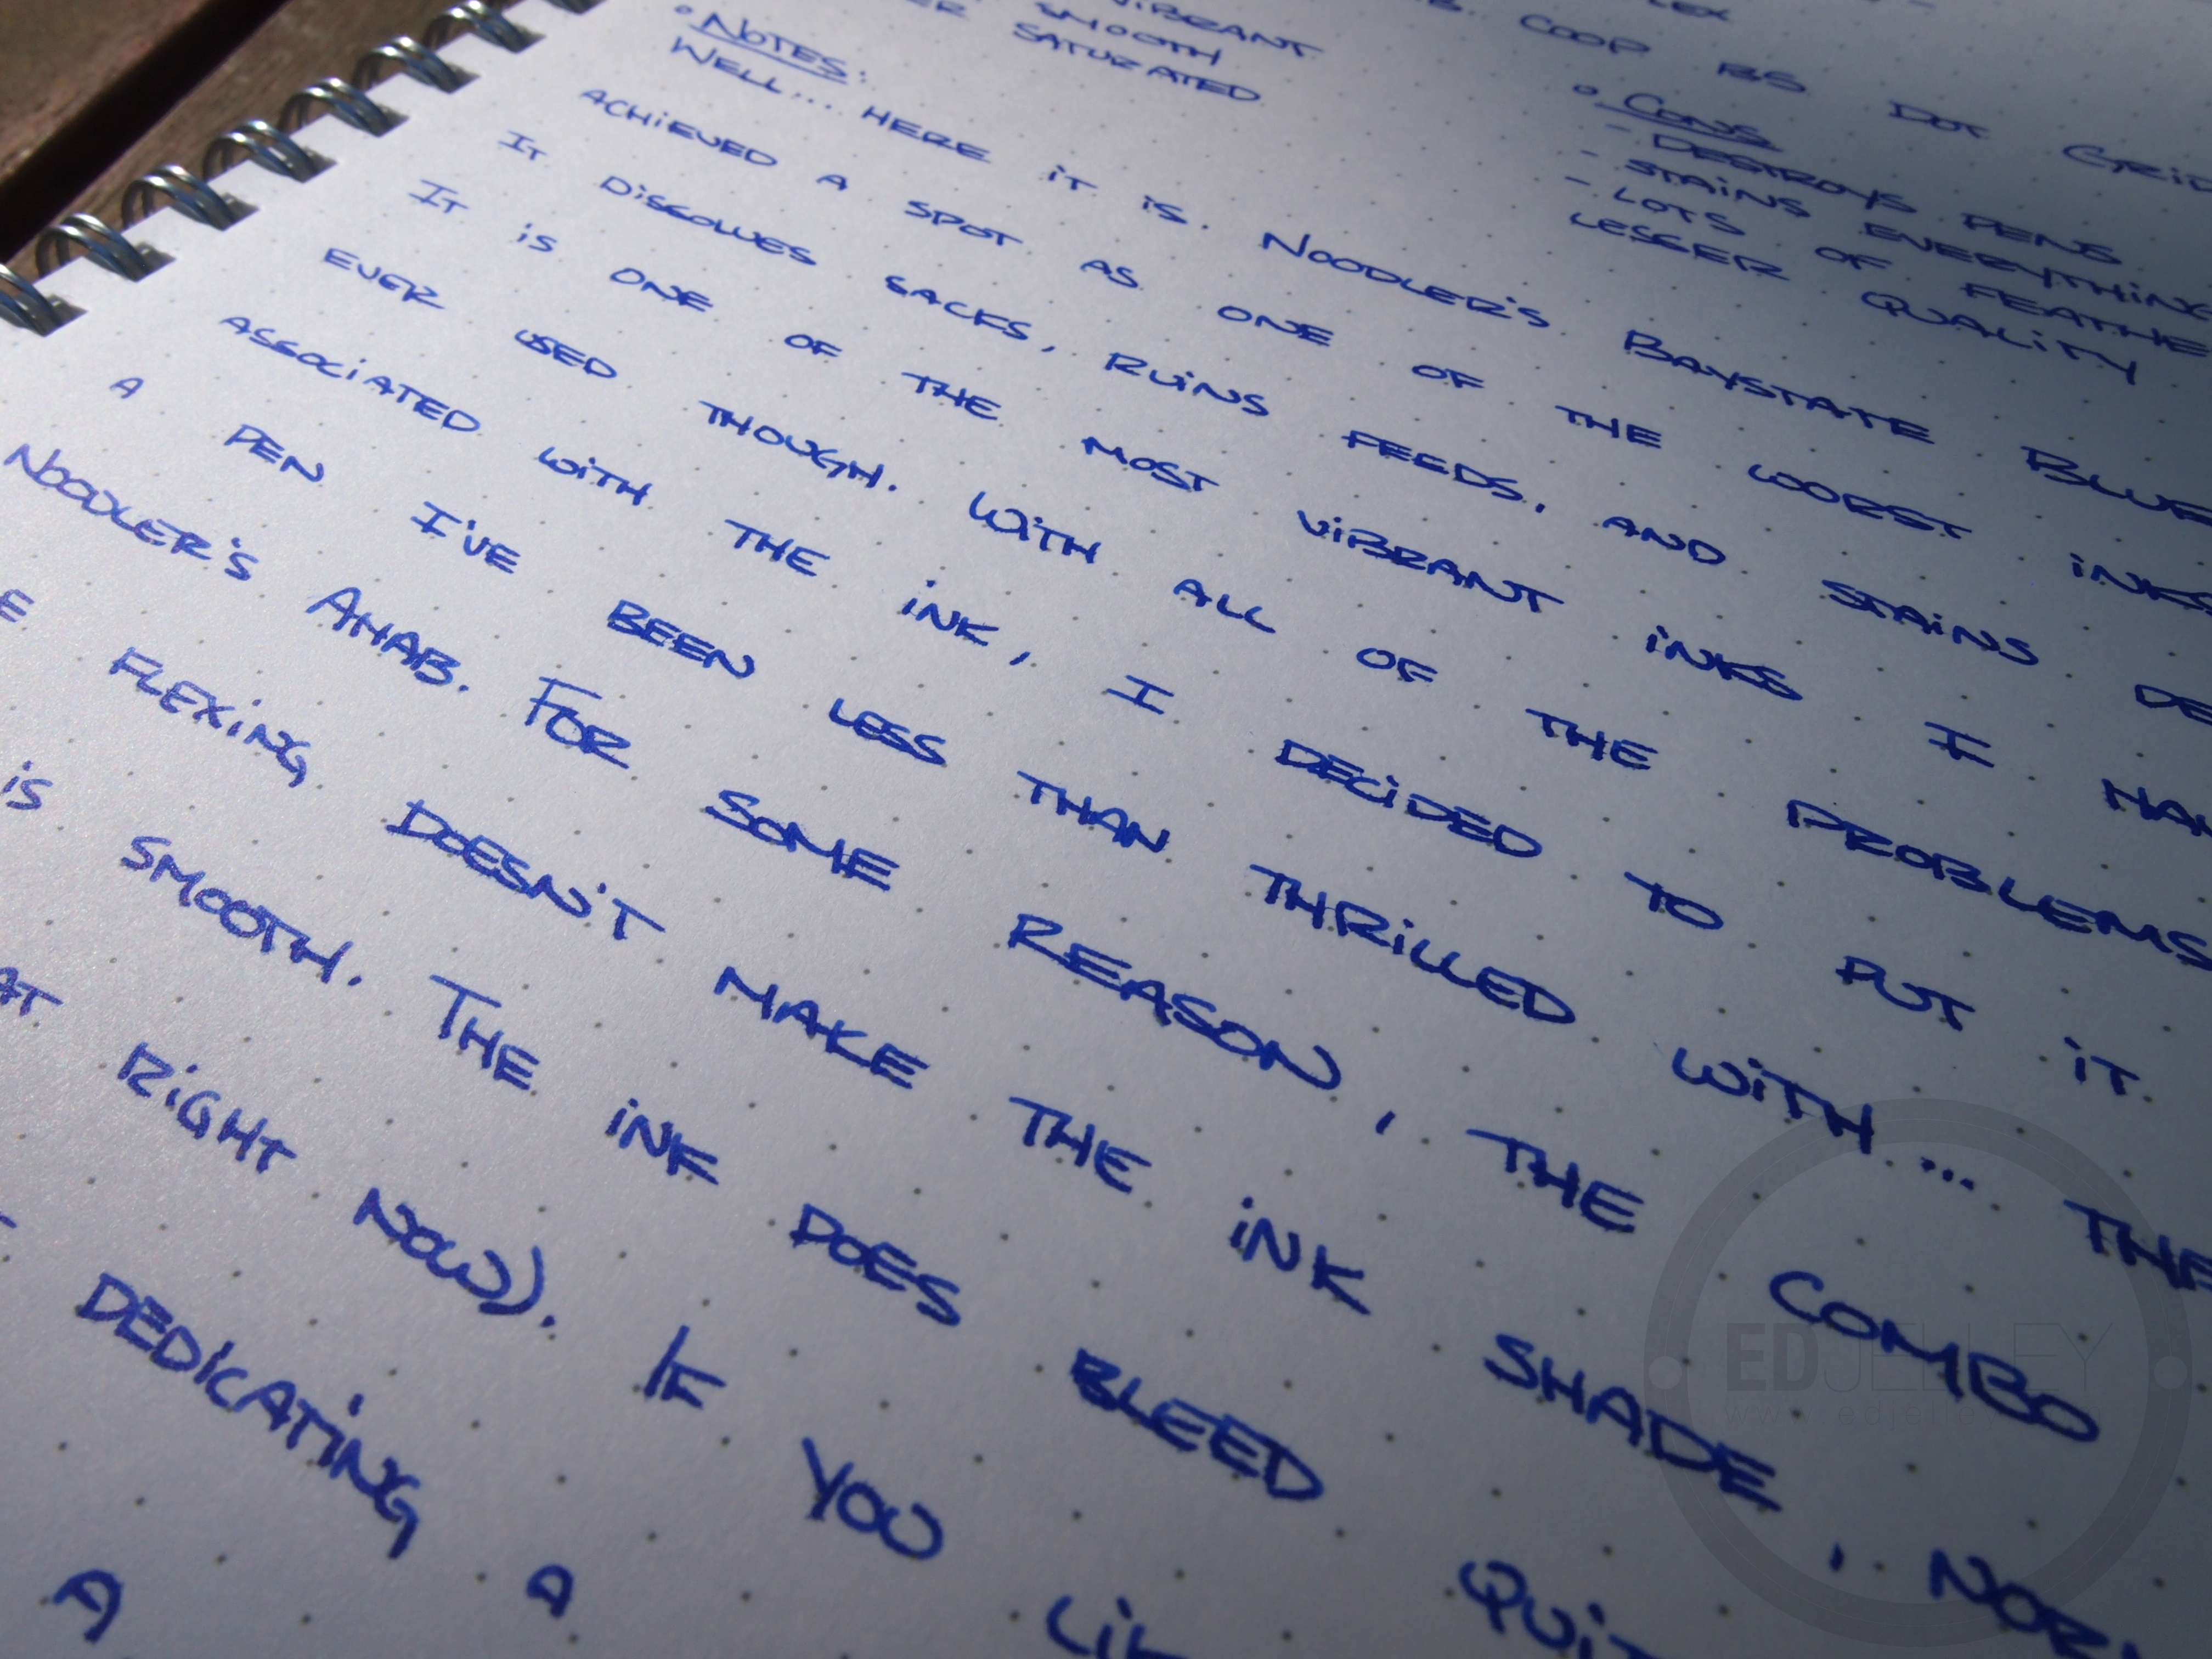 VIBRANT
SMOOTH
SATURATED
COOP RS DOT GRID
Cons
- DESTROYS PENS
- STAINS EVERYTHING
- LOTS OF FEATHE
LESSER QUALITY
NOTES:
WELL... HERE IT IS. NOODLER'S BAYSTATE BLUE
ACHIEVED A SPOT AS ONE OF THE WORST INKS
IT DISSOLVES SACKS, RUINS FEEDS, AND STAINS
IT IS ONE OF THE MOST VIBRANT INKS I HAV
EVER USED THOUGH. WITH ALL OF THE PROBLEMS
ASSOCIATED WITH THE INK, I DECIDED TO PUT IT
A PEN I'VE BEEN LESS THAN THRILLED WITH... THE
NOODLER'S AHAB. FOR SOME REASON, THE COMBO
FLEXING DOESN'T MAKE THE INK SHADE, NOR
IS SMOOTH. THE INK DOES BLEED QUIT
AT RIGHT NOW). IF YOU LIK
DEDICATING A
A
EDJELLEY